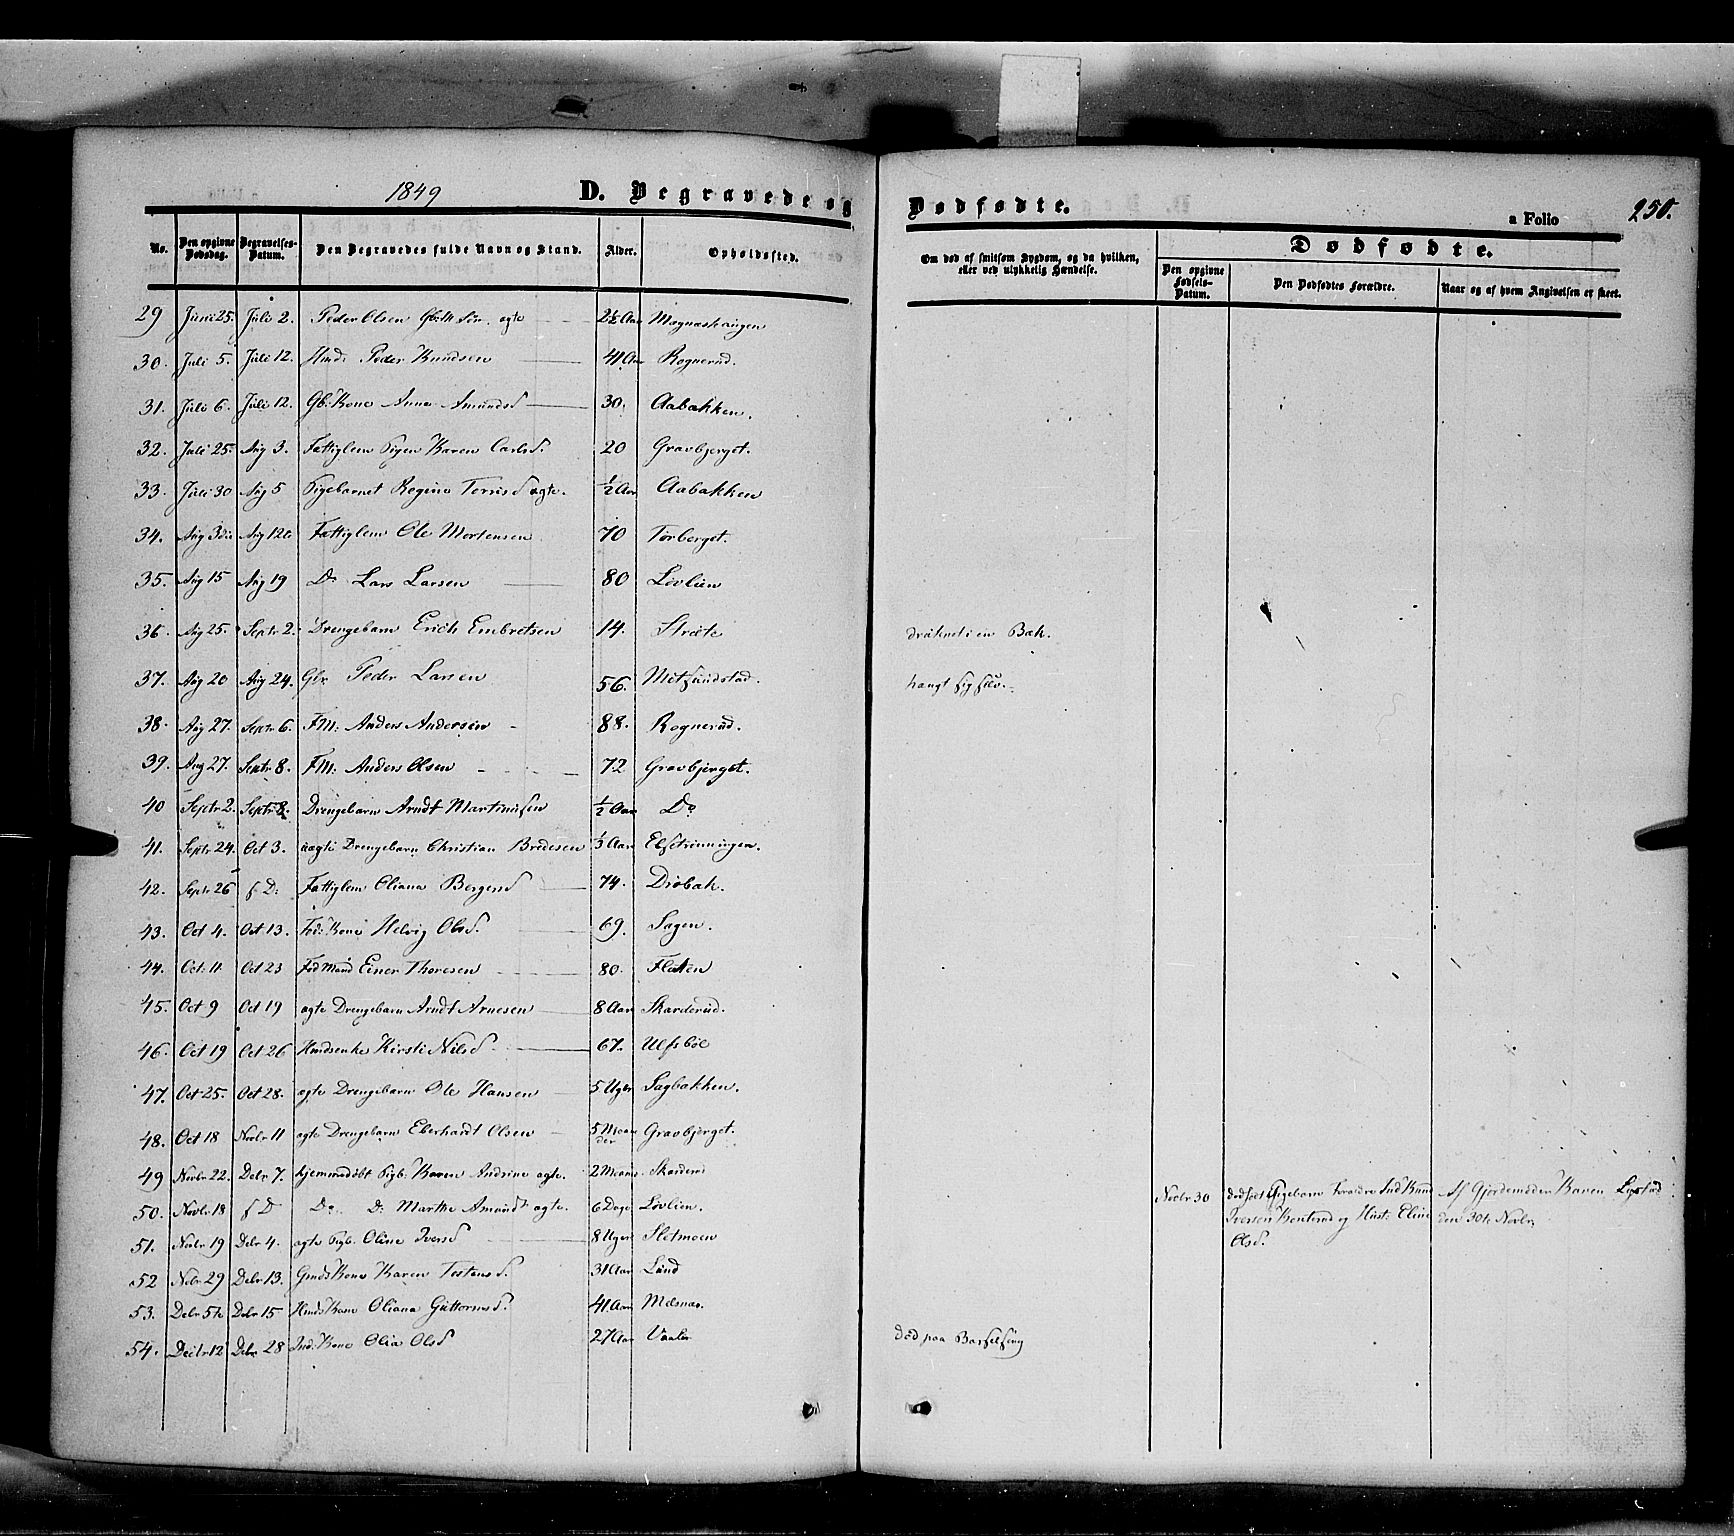 1849 D. Begravede og Dødfødte. a Folio 250.
No. Den opgivne Dødsdag. Begravelses-Datum. Den Begravedes fulde Navn og Stand. Alder. Opholdssted. Om død af smitsom Sygdom, og da hvilken, eller ved ulykkelig Hændelse. Dødfødte.
Den opgivne Fødsels-Datum. Den Dødfødtes Forældre. Naar og af hvem Angivelsen er skeet.
29 Juni 25. Juli 2. Peder Olsen Gbm Søn. ægte 2½ Aar Magnushaugen
30. Juli 5. Juli 12. Hmd: Peder Knudsen 41 Aar Rognerud.
31. Juli 6. Juli 12. Gb: Kone Anne Amundsd 30. Aabakken.
32. Juli 25. Aug 3. Fattiglem Pigen Karen Carlsd. 20 Gravbjerget.
33. Juli 30 Aug 5 Pigebarnet Regine Terrisd ægte. ½ Aar Aabakken
34. Aug 3die Aug 12te Fattiglem Ole Mortensen 70 Torberget.
35. Aug 15 Aug 19 Do Lars Larsen 80 Lövlien
36. Aug 25. Septr 2. Drengebarn Erich Embretsen 14. Stræte druknet i en Bæk.
37. Aug 20 Aug 24. Gbr Peder Larsen 56. Mitskindstad. hængt sig selv.
38. Aug 27. Septr 6. FM: Anders Andersen 88. Rognerud.
39. Aug 27. Septr 8. FM: Anders Olsen 72 Gravbjerget.
40 Septr 2. Septr 8. Drengebarn Arndt Martinusen ½ Aar Do
41. Septr 24. Oct 3. uægte Drengebarn Christian Bredesen ½ Aar Elsetrønningen.
42. Septr 26 s D: Fattiglem Oliana Bergersd 74. Dröbak.
43. Oct 4. Oct 13. Fød: Kone Helvig Olsd. 69. Sagen.
44. Oct: 11. Oct 23 Fød Mand Einer Thoresen 80. Fløten
45. Oct 9 Oct 19 ægte Drengebarn Arndt Arnesen 8 Aar Skarderud.
46. Oct 19 Oct 26 Hmdsenke Kirsti Nilsd 67. Ulfsböe
47. Oct 25. Oct 28. ægte Drengebarn Ole Hansen 5 Uger Sagbakken.
48. Oct 18 Novbr 11 ægte Drengebarn Eberhardt Olsen 5 Maaneder Gravbjerget.
49 Novbr 22. Debr. 7. hjemmedøbt Pigb. Karen Andrine ægte. 2 Maans Skarderud
50. Novbr 18 s D Do. D: Marthe Amundsd ægte. 6 Dage Lövlien.
Novbr 30 dødfødt Pigebarn Forældre Ind Knud Iversen Kenterud og Hust: Eline Olsd. Af Gjordemoder Karen Lystad den 30te Novbr.
51. Novbr 19 Debr 4. ægte Pigb. Oline Iversd 8 Uger Sletmoen
52 Nobr 29 Debr 13. Gmds Kone Karen Tostensd. 31 Aar Lund
53. Debr 5te Debr 15 Hmds Kone Oliana Guttormsd. 41 Aar Mæsnæs.
54. Decbr 12 Debr 28 Ind: Kone Olia Olsd 27 Aar Vaaler død paa Barselseng